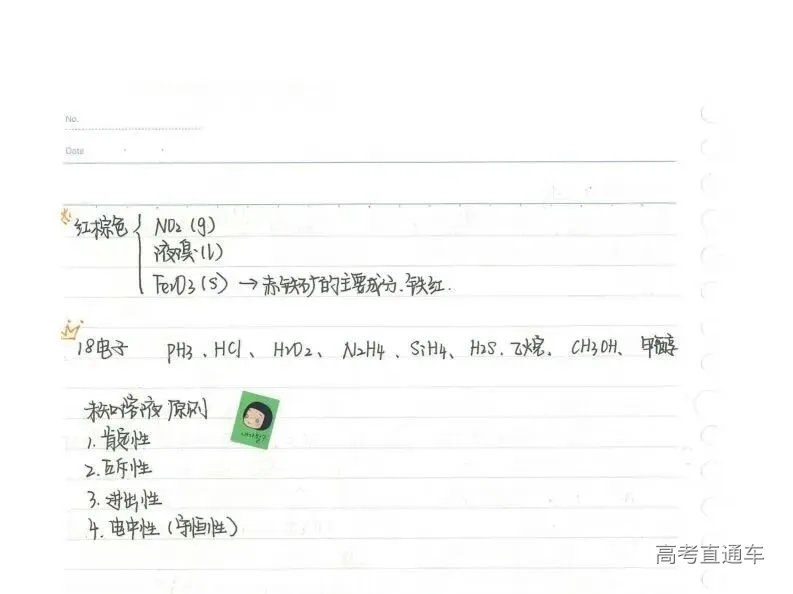 No.
Date
红棕色 { NO2(g)
液溴(l)
Fe2O3(s) → 赤铁矿的主要成分.铁红.
18电子 PH3、HCl、H2O2、N2H4、SiH4、H2S、乙烷、CH3OH、甲醇
未知溶液原则
1. 肯定性
2. 互斥性
3. 进出性
4. 电中性(守恒性)
高考直通车